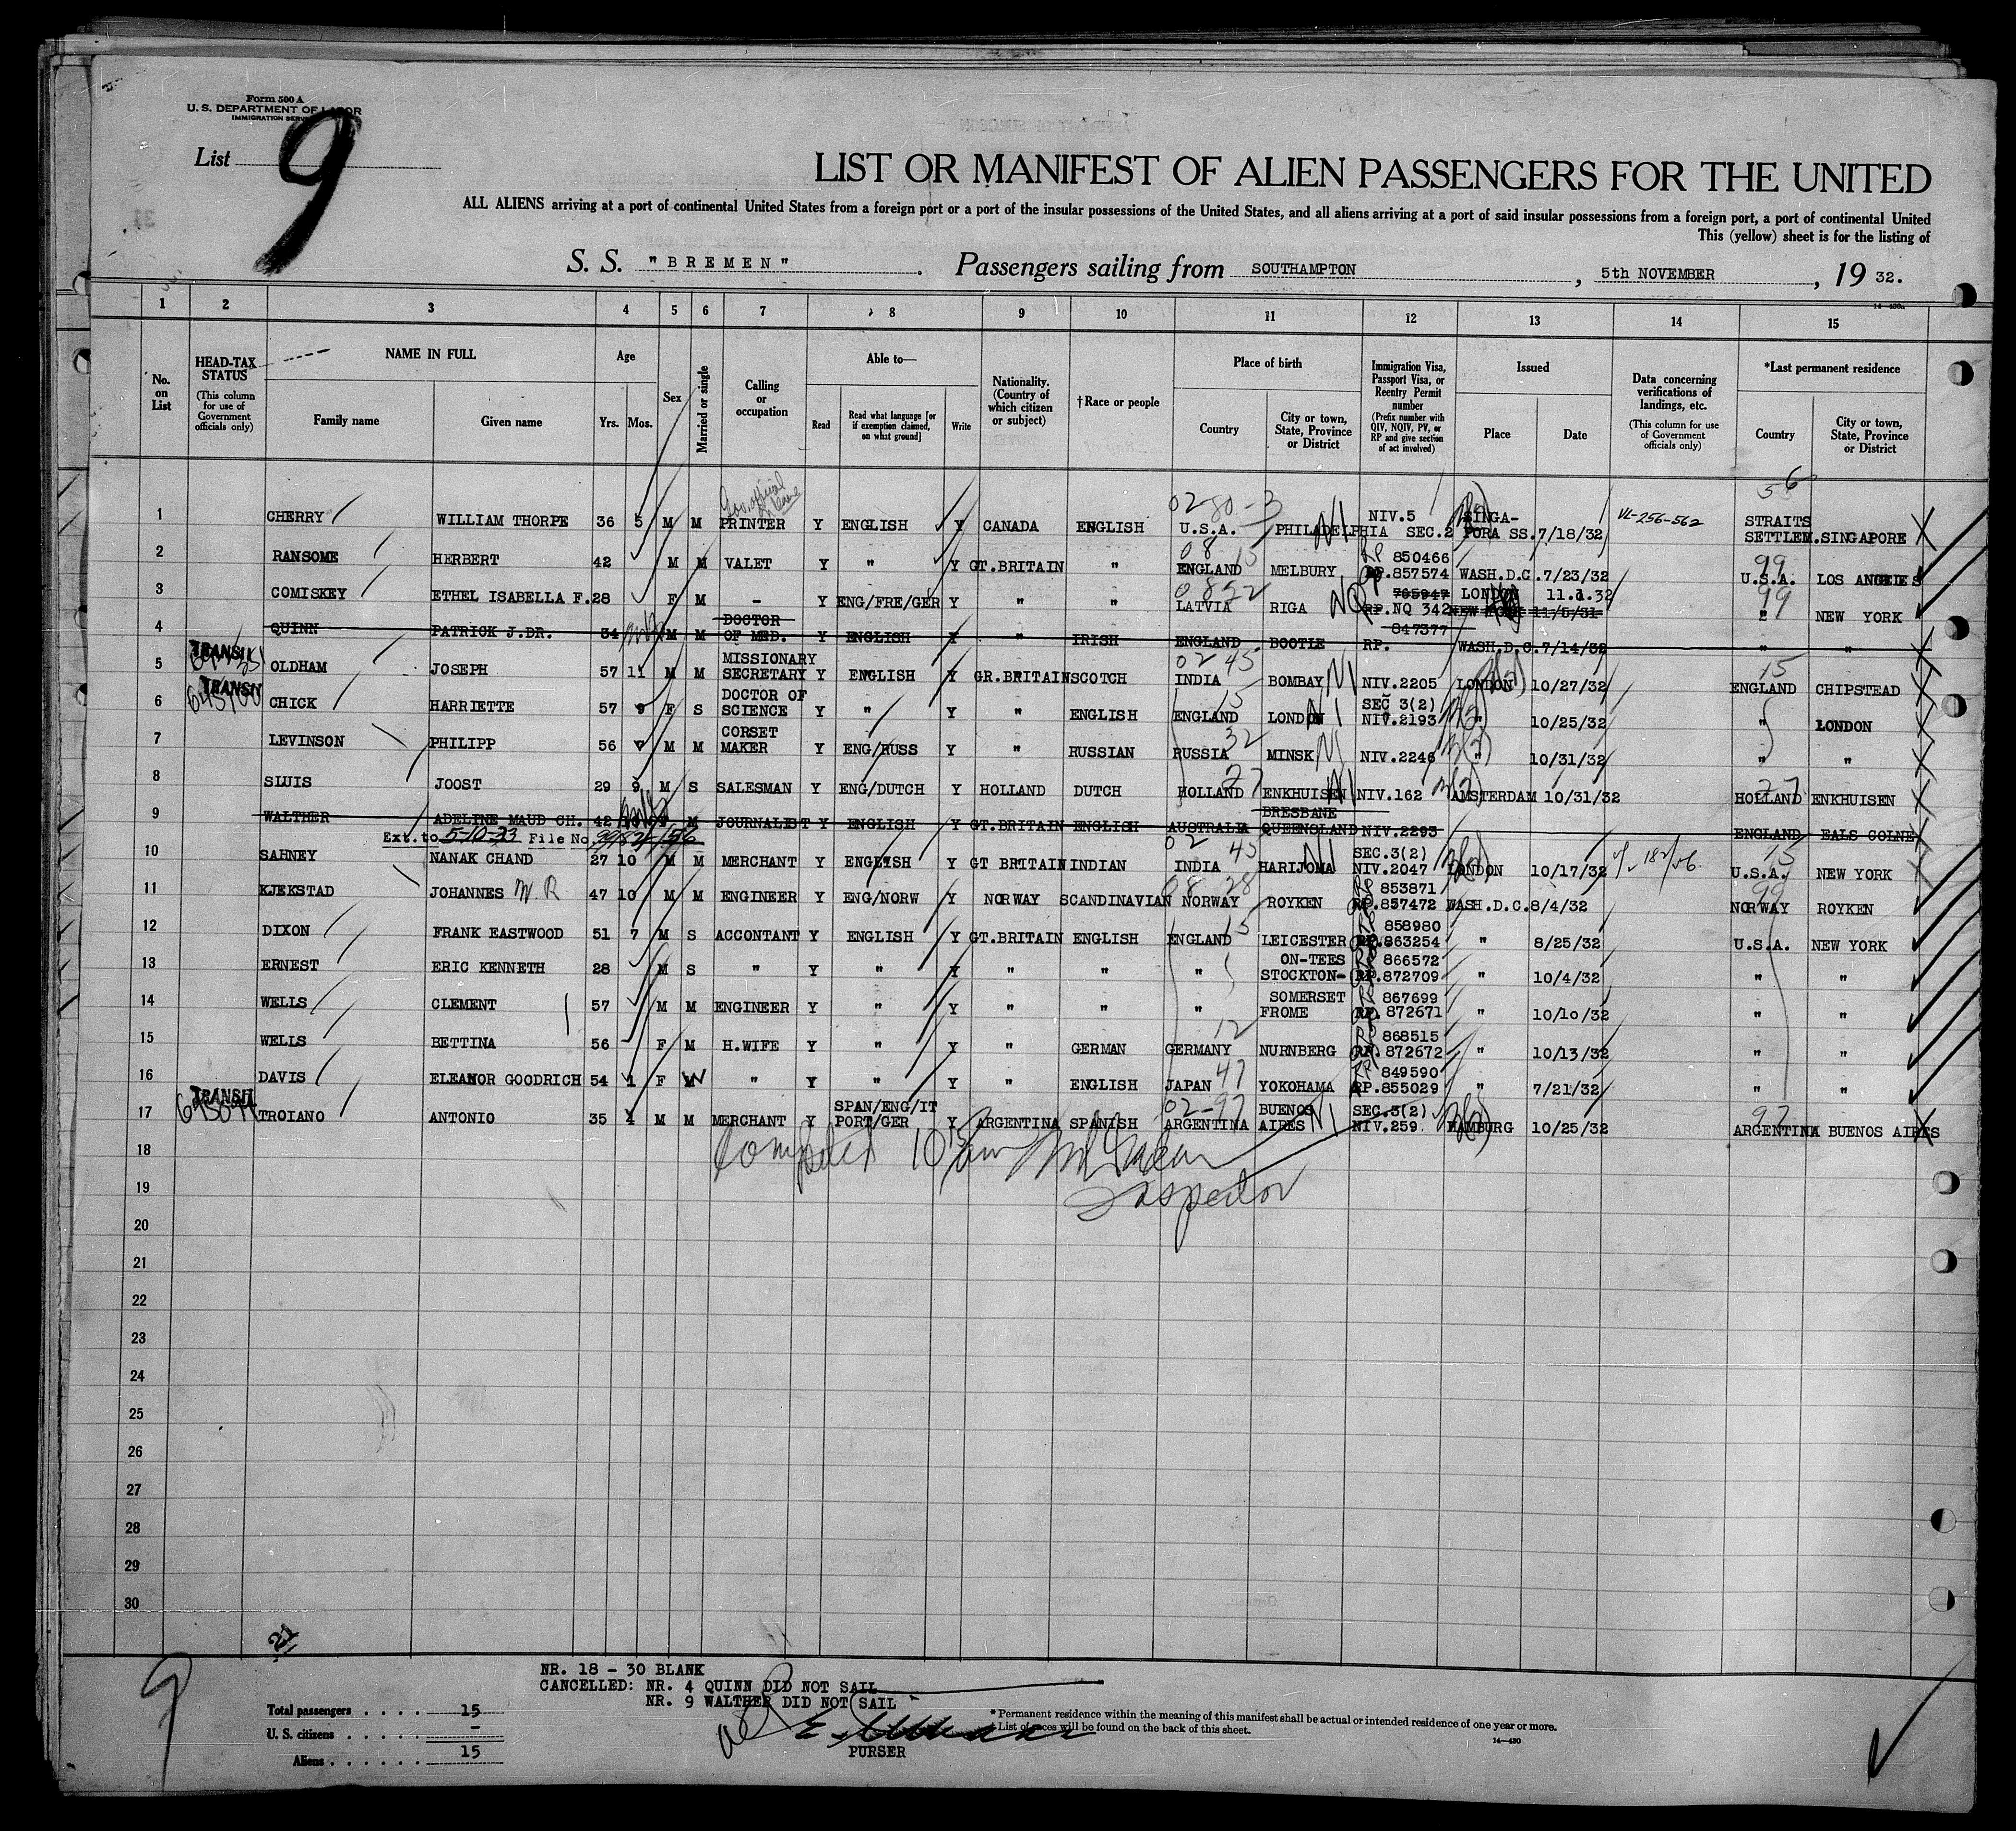 Form 500 A
U. S. DEPARTMENT OF LABOR
IMMIGRATION SERVICE
List 9
LIST OR MANIFEST OF ALIEN PASSENGERS FOR THE UNITED
ALL ALIENS arriving at a port of continental United States from a foreign port or a port of the insular possessions of the United States, and all aliens arriving at a port of said insular possessions from a foreign port, a port of continental United
This (yellow) sheet is for the listing of
S. S. "BREMEN" . Passengers sailing from SOUTHAMPTON , 5th NOVEMBER , 19 32.
14-430a
1 2 3 4 5 6 7 8 9 10 11 12 13 14 15
No. on List
HEAD-TAX STATUS (This column for use of Government officials only)
NAME IN FULL
Family name Given name
Age
Yrs. Mos.
Sex
Married or single
Calling or occupation
Able to—
Read Read what language [or if exemption claimed, on what ground] Write
Nationality. (Country of which citizen or subject)
†Race or people
Place of birth
Country City or town, State, Province or District
Immigration Visa, Passport Visa, or Reentry Permit number (Prefix number with QIV, NQIV, PV, or RP and give section of act involved)
Issued
Place Date
Data concerning verifications of landings, etc. (This column for use of Government officials only)
*Last permanent residence
Country City or town, State, Province or District
Gov. official on leave 0280-3 56
1 CHERRY WILLIAM THORPE 36 5 M M PRINTER Y ENGLISH Y CANADA ENGLISH U.S.A. PHILADELPHIA NIV.5 SEC.2 SINGA-PORA SS. 7/18/32 VL-256-562 STRAITS SETTLEM. SINGAPORE
2 RANSOME HERBERT 42 M M VALET Y " Y GT.BRITAIN " ENGLAND MELBURY 850466 RP.857574 WASH.D.C. 7/23/32 99 U.S.A. LOS ANGELES
3 COMISKEY ETHEL ISABELLA F. 28 F M - Y ENG/FRE/GER Y " " 0852 LATVIA RIGA 765947 RP.NQ 342 LONDON NEW YORK 11.1.32 11/5/31 99 " NEW YORK
4 QUINN PATRICK J.DR. 34 M M DOCTOR OF MED. Y ENGLISH Y " IRISH ENGLAND BOOTLE 847377 RP. WASH.D.C. 7/14/32 " "
TRANSIT
5 OLDHAM JOSEPH 57 11 M M MISSIONARY SECRETARY Y ENGLISH Y GR.BRITAIN SCOTCH 02 45 INDIA BOMBAY NI NIV.2205 LONDON 10/27/32 15 ENGLAND CHIPSTEAD
TRANSIT
6 CHICK HARRIETTE 57 9 F S DOCTOR OF SCIENCE Y " Y " ENGLISH 15 ENGLAND LONDON NI SEC 3(2) NIV.2193 " 10/25/32 " LONDON
7 LEVINSON PHILIPP 56 M M CORSET MAKER Y ENG/RUSS Y " RUSSIAN 32 RUSSIA MINSK NI NIV.2246 " 10/31/32 " "
8 SLUIS JOOST 29 9 M S SALESMAN Y ENG/DUTCH Y HOLLAND DUTCH 27 HOLLAND ENKHUISEN NI NIV.162 AMSTERDAM 10/31/32 27 HOLLAND ENKHUISEN
9 WALTHER ADELINE MAUD CH. 42 F M JOURNALIST Y ENGLISH Y GT.BRITAIN ENGLISH AUSTRALIA BRESBANE QUEENSLAND NIV.2293 ENGLAND EALS COLNE
Ext. to 5-10-33 File No. 99824/556
10 SAHNEY NANAK CHAND 27 10 M M MERCHANT Y ENGLISH Y GT BRITAIN INDIAN 02 45 INDIA HARIJOMA NI SEC.3(2) NIV.2047 LONDON 10/17/32 15 U.S.A. NEW YORK
11 KJEKSTAD JOHANNES M.R 47 10 M M ENGINEER Y ENG/NORW Y NORWAY SCANDINAVIAN 08 28 NORWAY ROYKEN 853871 RP.857472 WASH.D.C. 8/4/32 99 NORWAY ROYKEN
12 DIXON FRANK EASTWOOD 51 7 M S ACCONTANT Y ENGLISH Y GT.BRITAIN ENGLISH 15 ENGLAND LEICESTER 858980 RP.863254 " 8/25/32 U.S.A. NEW YORK
13 ERNEST ERIC KENNETH 28 M S " Y " Y " " " ON-TEES STOCKTON- 866572 RP.872709 " 10/4/32 " "
14 WELLS CLEMENT 57 M M ENGINEER Y " Y " " " SOMERSET FROME 867699 RP.872671 " 10/10/32 " "
15 WELLS BETTINA 56 F M H.WIFE Y " Y " GERMAN 12 GERMANY NURNBERG 868515 RP.872672 " 10/13/32 " "
16 DAVIS ELEANOR GOODRICH 54 1 F W " Y " Y " ENGLISH JAPAN 47 YOKOHAMA 849590 RP.855029 " 7/21/32 " "
TRANSIT
17 TROIANO ANTONIO 35 4 M M MERCHANT Y SPAN/ENG/IT PORT/GER Y ARGENTINA SPANISH 02-97 ARGENTINA BUENOS AIRES NI SEC.3(2) NIV.259 HAMBURG 10/25/32 97 ARGENTINA BUENOS AIRES
18
Inspector
19
20
21
22
23
24
25
26
27
28
29
30
21
NR. 18 - 30 BLANK
CANCELLED: NR. 4 QUINN DID NOT SAIL
NR. 9 WALTHER DID NOT SAIL
9
Total passengers . . . . 15
U. S. citizens . . . . . -
Aliens . . . . . . 15
PURSER
* Permanent residence within the meaning of this manifest shall be actual or intended residence of one year or more.
† List of races will be found on the back of this sheet.
14—430